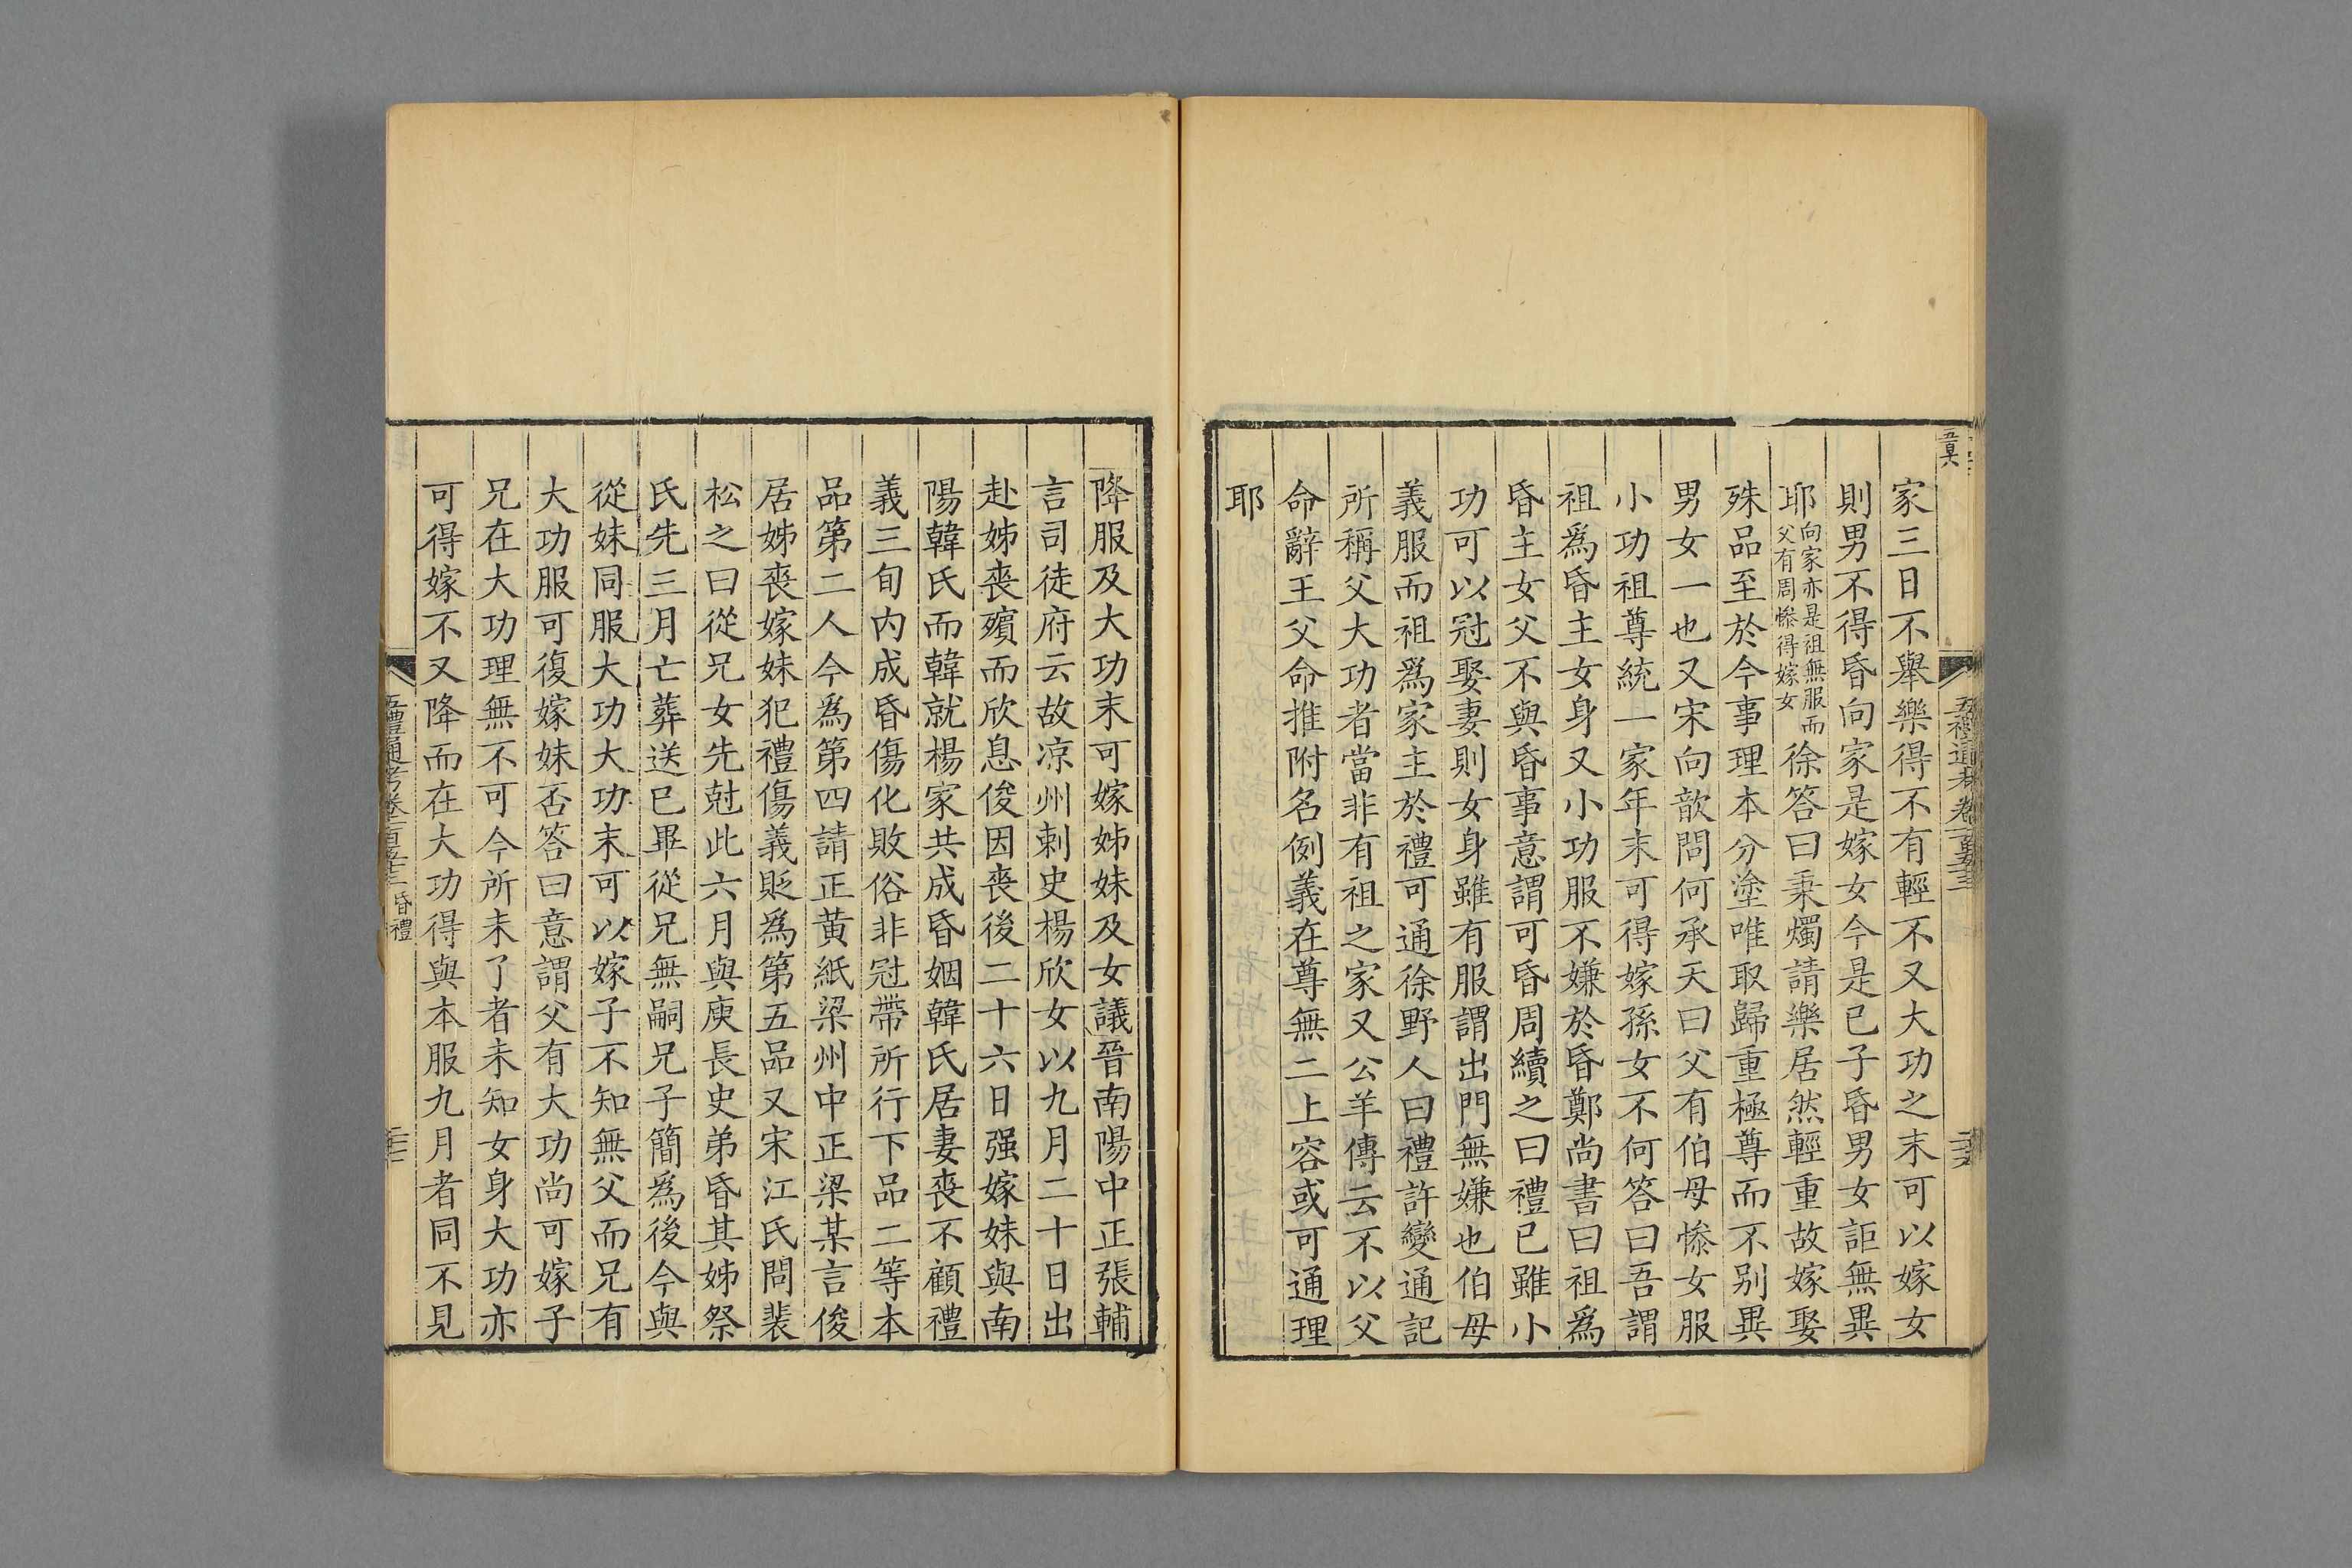 家三日不舉樂得不有輕不又大功之末可以嫁女
則男不得昏向家是嫁女今是已子昏男女詎無異
耶向家亦是祖無服而父有周慘得嫁女徐答曰秉燭請樂居然輕重故嫁娶
殊品至於今事理本分塗唯取歸重極尊而不别異
男女一也又宋向歆問何承天曰父有伯母慘女服
小功祖尊統一家年末可得嫁孫女不何答曰吾謂
祖爲昏主女身又小功服不嫌於昏鄭尚書曰祖爲
昏主女父不與昏事意謂可昏周續之曰禮已雖小
功可以冠娶妻則女身雖有服謂出門無嫌也伯母
義服而祖爲家主於禮可通徐野人曰禮許變通記
所稱父大功者當非有祖之家又公羊傳云不以父
命辭王父命推附名例義在尊無二上容或可通理
耶
降服及大功末可嫁姊妹及女議晉南陽中正張輔
言司徒府云故凉州刺史楊欣女以九月二十日出
赴姊喪殯而欣息俊因喪後二十六日强嫁妹與南
陽韓氏而韓就楊家共成昏姻韓氏居妻喪不顧禮
義三旬内成昏傷化敗俗非冠帶所行下品二等本
品第二人今爲第四請正黄紙梁州中正梁某言俊
居姊喪嫁妹犯禮傷義貶爲第五品又宋江氏問裴
松之曰從兄女先尅此六月與庾長史弟昏其姊祭
氏先三月亡葬送已畢從兄無嗣兄子簡爲後今與
從妹同服大功大功末可以嫁子不知無父而兄有
大功服可復嫁妹否答曰意謂父有大功尚可嫁子
兄在大功理無不可今所未了者未知女身大功亦
可得嫁不又降而在大功得與本服九月者同不見
五禮通考卷一百五十三 昏禮